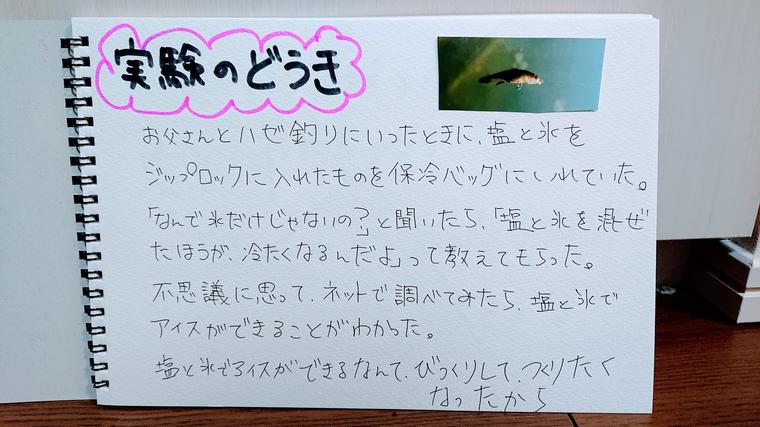 実験のどうき
お父さんとハゼ釣りにいったときに、塩と氷を
ジップロックに入れたものを保冷バッグにいれていた。
「なんで氷だけじゃないの?」と聞いたら、「塩と氷を混ぜ
たほうが、冷たくなるんだよ」って教えてもらった。
不思議に思って、ネットで調べてみたら、塩と氷で
アイスができることがわかった。
塩と氷でアイスができるなんて、びっくりして、つくりたく
なったから